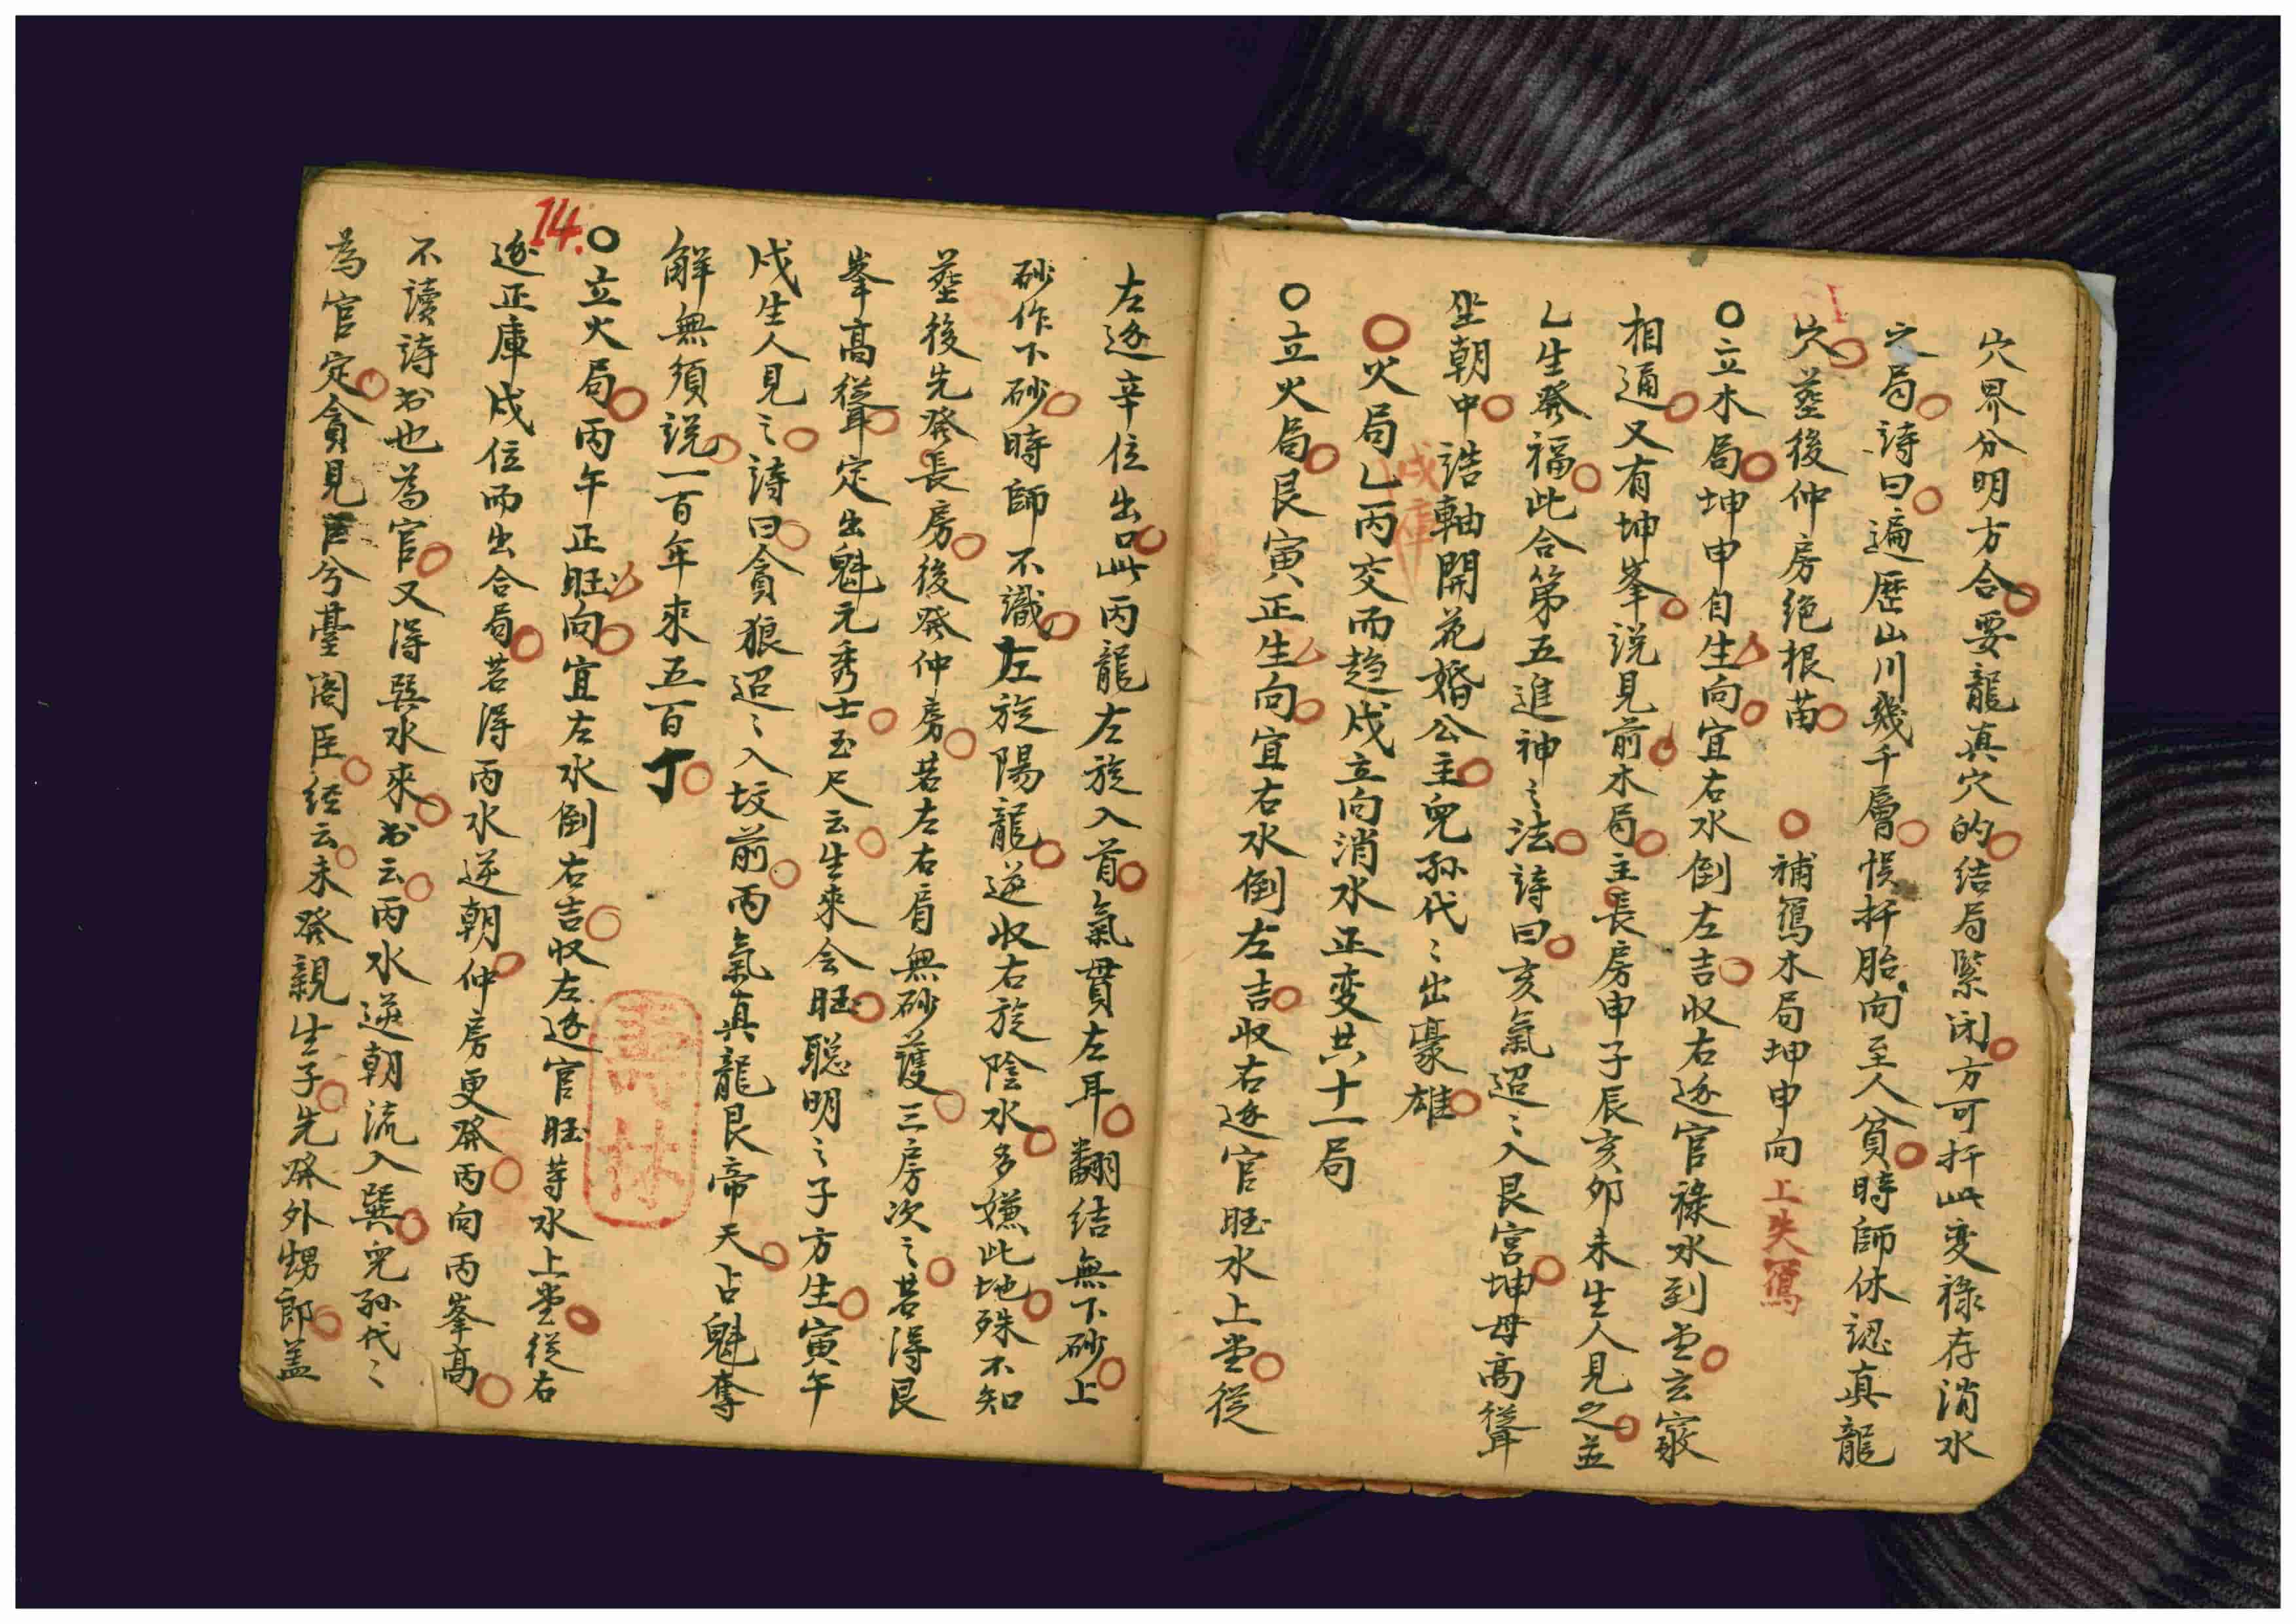 穴界分明方合要龍真穴的結局緊闭方可扦此变祿存消水
穴局詩曰遍歷山川幾千層悮扦胎向至人貧時師休認真龍
穴塟後仲房绝根苗
補寫木局坤申向上失寫
立木局坤申自生向宜右水倒左吉收右逐官祿水到堂玄竅
相通又有坤峯说見前木局主長房申子辰亥卯未生人見之並
乙生發福此合第五進神之法詩曰亥氣迢〻入艮宮坤母高聳
坐朝中誥軸開花婚公主兒孫代〻出豪雄
火局乙丙交而趋戍立向消水正变共十一局
戌庫
立火局艮寅正生向宜右水倒左吉收右逐官旺水上堂從
左逐辛位出口此丙龍左旋入首氣贯左耳翻结無下砂上
砂作下砂時師不識左旋陽龍逆收右旋陰水多嫌此地殊不知
塟後先發長房後發仲房若左右肩無砂護三房次之若得艮
峯高聳定出魁元秀士玉尺云生來会旺聪明之子方生寅午
戍生人見之詩曰貪狼迢〻入坟前丙氣真龍艮帝天占魁奪
解無須説一百年來五百丁
14.
立火局丙午正旺向宜左水倒右吉收左逐官旺等水上堂從右
逐正庫戍位而出合局若得丙水逆朝仲房更發丙向丙峯高
不讀詩书也為官又得巽水來书云丙水逆朝流入巽兒孫代〻
為官定貪見官兮臺阁臣经云未發親生子先發外甥郎盖